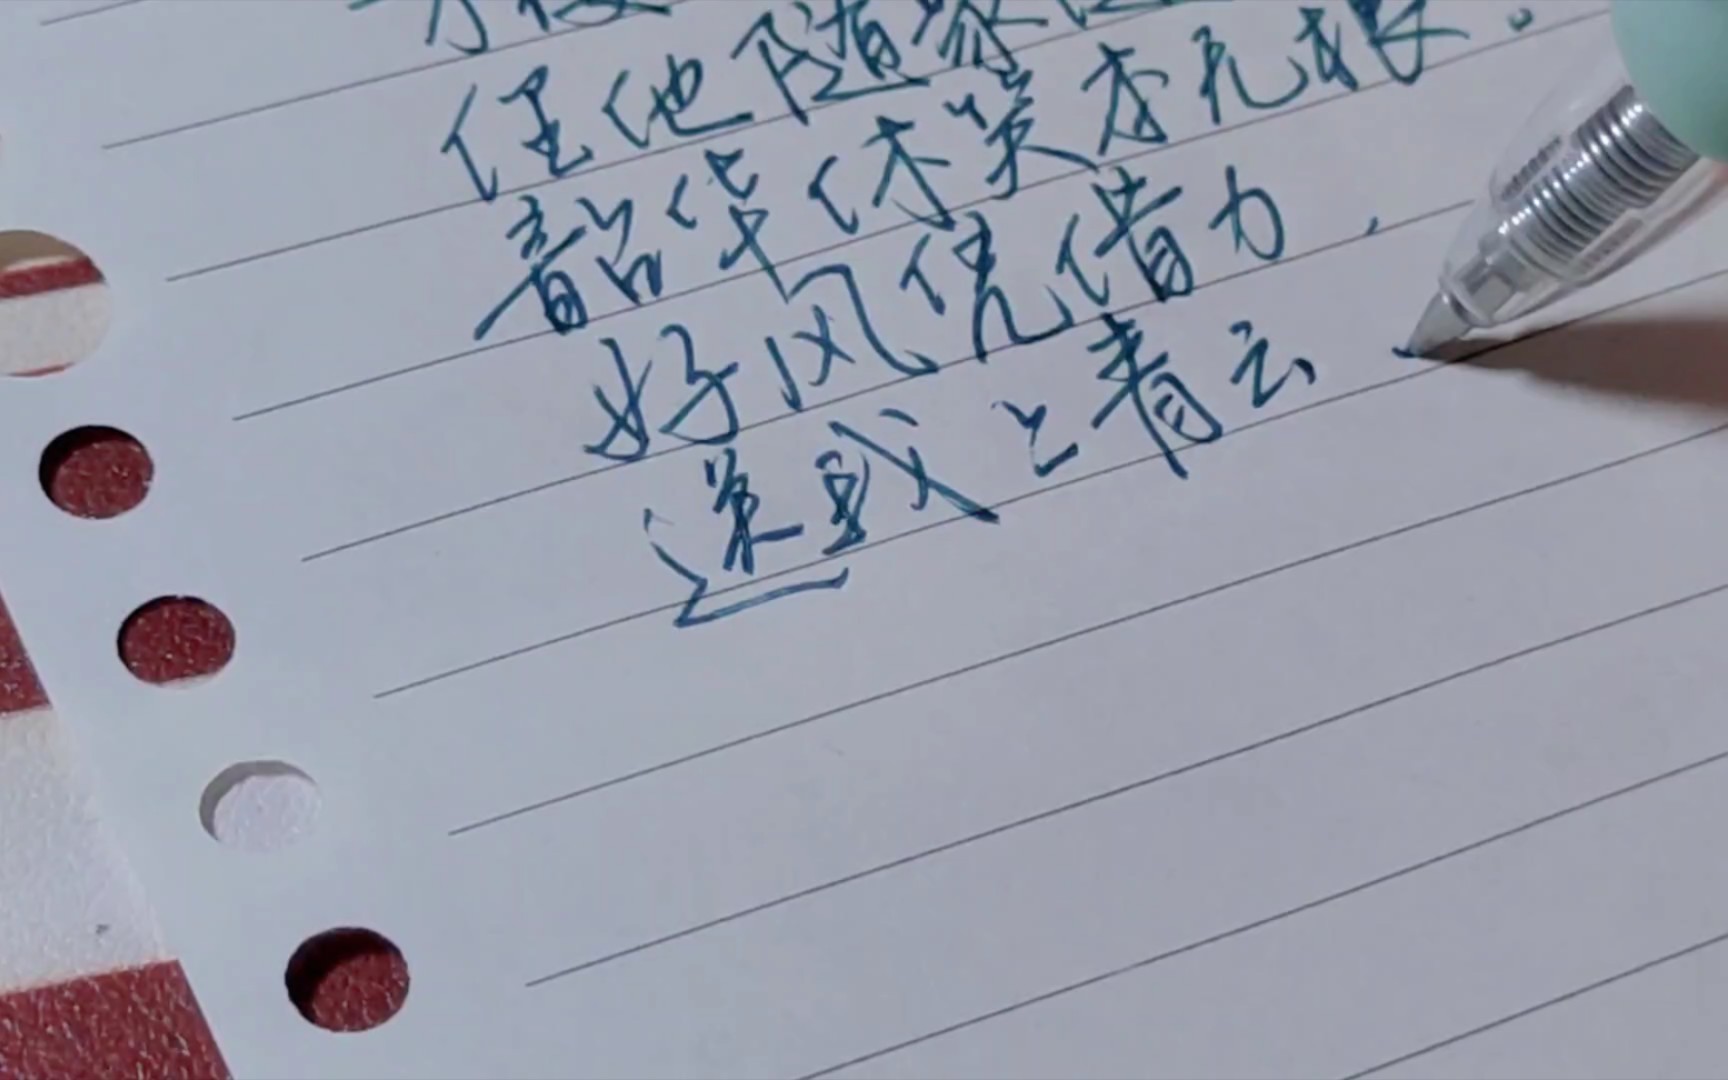 任他随聚
韶华休笑本无根。
好风凭借力，
送我上青云